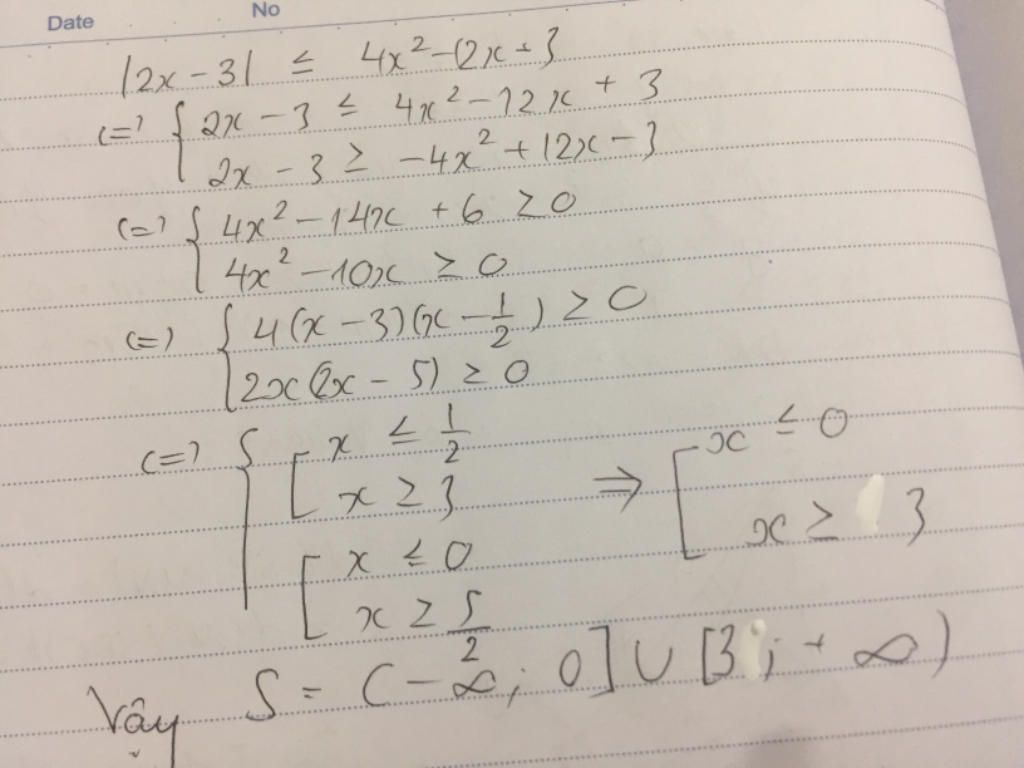 Date No
|2x - 3| ≤ 4x² - 12x + 3
<=> { 2x - 3 ≤ 4x² - 12x + 3
2x - 3 ≥ -4x² + 12x - 3
<=> { 4x² - 14x + 6 ≥ 0
4x² - 10x ≥ 0
<=> { 4(x - 3)(x - 1/2) ≥ 0
2x(2x - 5) ≥ 0
<=> { [ x ≤ 1/2
x ≥ 3
[ x ≤ 0
x ≥ 5/2
=> [ x ≤ 0
x ≥ 3
Vậy S = (-∞; 0] ∪ [3; +∞)